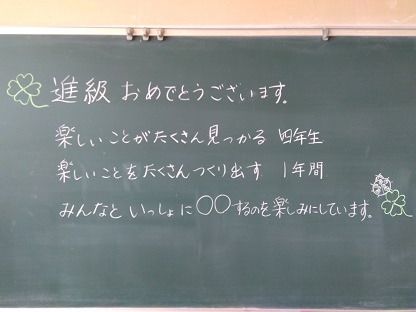 進級 おめでとうございます。
楽しいことがたくさん見つかる 四年生
楽しいことをたくさんつくり出す 1年間
みんなと いっしょに ○○するのを楽しみにしています。